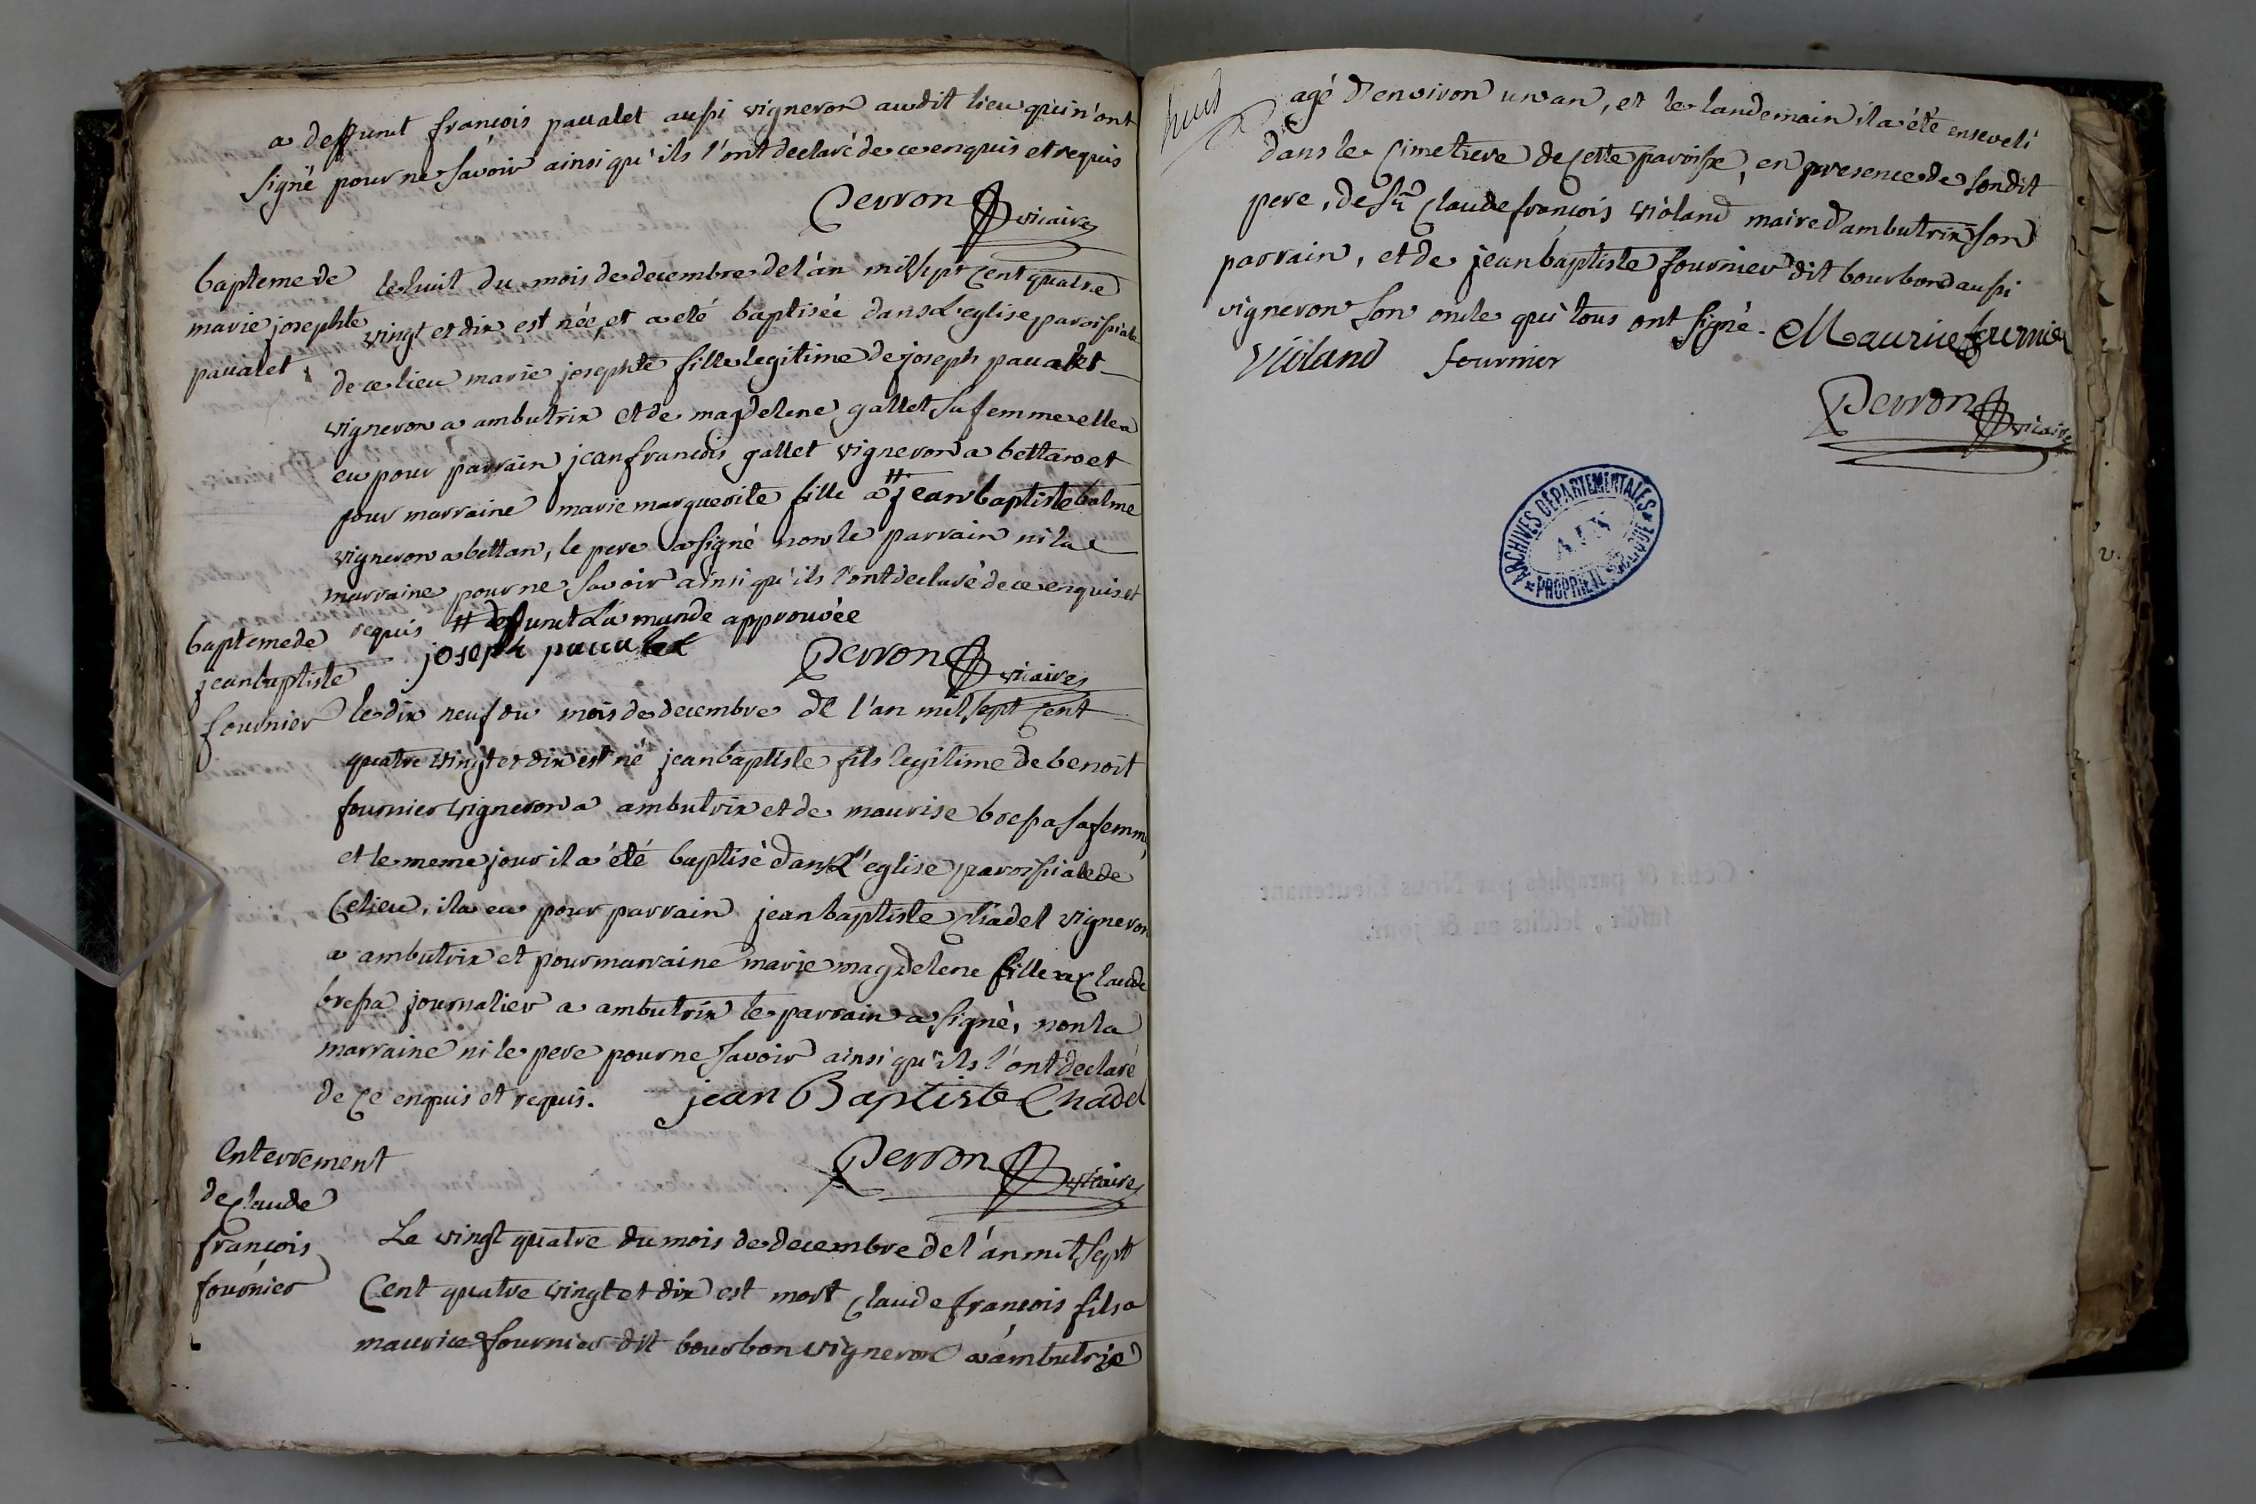 a deffunt françois paualet aussi vigneron audit lieu qui n'ont
signé pour ne savoir ainsi qu'ils l'ont declaré de ce enquis et requis
Perron vicaire
bapteme de
marie josephte
paualet
le huit du mois de decembre de l'an mil sept cent quatre
vingt et dix est née, et a eté baptisée dans l'eglise paroissiale
de ce lieu marie josephte fille legitime de joseph paualet
vigneron a ambutrix et de magdelene gallet sa femme elle a
eu pour parrain jean françois gallet vigneron a bettan et
pour marraine marie marguerite fille a # jean baptiste balme
vigneron a bettan, le pere a signé non le parrain ni la
marraine pour ne savoir ainsi qu'ils l'ont declaré de ce enquis et
requis # deffunt La mande approuvée
joseph paualet
Perron vicaire
bapteme de
jean baptiste
fournier
le dix neuf du mois de decembre de l'an mil sept cent
quatre vingt et dix est né jean baptiste fils legitime de benoit
fournier vigneron a ambutrix et de maurise bressa sa femme
et le meme jour il a été baptisé dans l'eglise paroissiale de
ce lieu, il a eu pour parrain jean baptiste Chadel vigneron
a ambutrix et pour marraine marie magdelene fille a Claude
bressa journalier a ambutrix le parrain a signé, non la
marraine ni le pere pour ne savoir ainsi qu'ils l'ont declaré
de ce enquis et requis. jean Baptiste Chadel
Perron vicaire
Enterrement
de Claude
françois
fournier
Le vingt quatre du mois de decembre de l'an mil sept
Cent quatre vingt et dix est mort Claude françois fils a
maurice fournier dit bourbon vigneron a ambutrix
agé d'environ un an, et le landemain il a été enseveli
dans le Cimetiere de cette paroisse, en presence de sondit
pere, de Sr Claude françois violand maire d'ambutrix son
parrain, et de jean baptiste fournier dit bourbon aussi
vigneron son oncle qui tous ont signé. Maurice fournier
Violand fournier
Perron vicaire
ARCHIVES DÉPARTEMENTALES
AIN
PROPRIÉTÉ PUBLIQUE